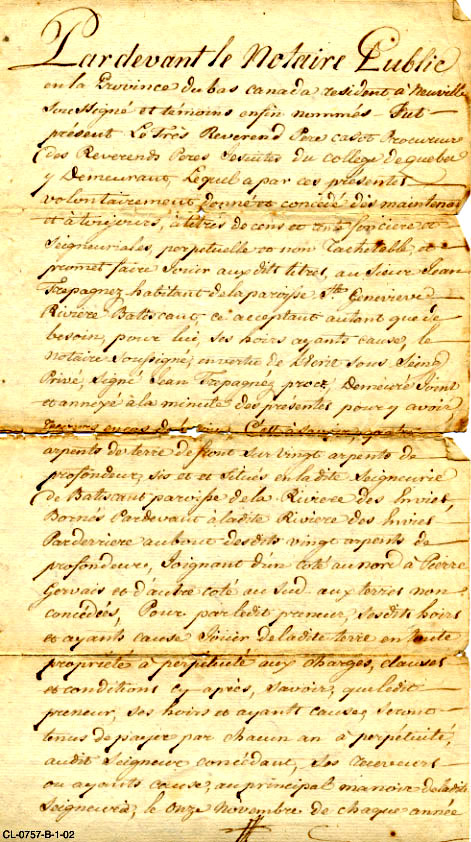 Pardevant le Notaire Public
en la Province du bas Canada resident a Neuville
Soussigné et témoins enfin nommés Fut
présent Le Très Reverend Pere casot Procureur
des Reverends Peres Jesuites du college de quebec
y Demeurant Lequel a par ces présentes
volontairement donné et concédé dès maintenant
et à toujours, à titres de cens et rente foncière et
Seigneuriales, perpetuelle et non Rachetable, et
promet faire Jouir auxdits titres, au Sieur Jean
Trepagnez habitant de la paroisse Ste Genevieve
Rivière Batiscant ce acceptant autant que de
besoin, pour lui, ses hoirs ayants cause, le
Notaire Soussigné, en vertu de l'Ecrit sous Seing
Privé, signé Jean Trepagnez proct, Demeuré Joint
et annexé à la minute des présentes pour y avoir
recours en cas de C'est à savoir, quatre
arpents de terre de front sur vingt arpents de
profondeur, sis et et situés en ladite Seigneurie
de Batiscant paroisse de la Rivière des Envies,
Bornés Pardevant à ladite Rivière des Envies
Parderriere au bout desdits vingt arpents de
profondeure, Joignant d'un coté au nord à Pierre
Gervais et d'autre coté au Sud aux terres non
concédées, Pour par ledit preneur, sesdits hoirs
et ayants cause Jouir de ladite terre en toute
propriété à perpétuité aux charges, clauses
et conditions cy après, savoir, que ledit
preneur, ses hoirs et ayants cause, seront
tenus de payer par chacun an à perpétuité,
audit Seigneur concédant, ses receveurs
ou ayants cause, au principal manoir de ladite
Seigneurie, le onze Novembre de chaque année
CL-0757-B-1-02